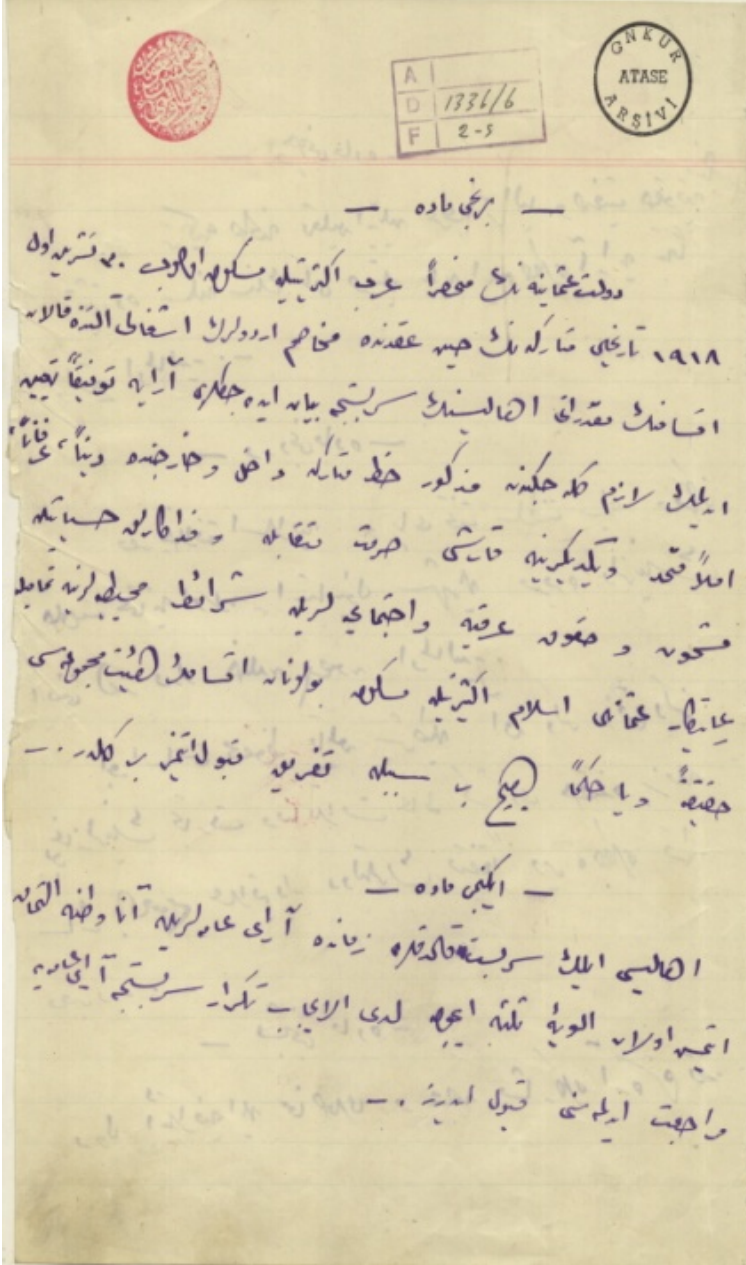 GNKUR
ATASE
ARŞİVİ
A
D 1336/6
F 2-5
— برنجی ماده —
دولت عثمانیه نك منحصراً عرب اکثریتیله مسکون اولوب ٣٠ تشرین اول
١٩١٨ تاریخلی متارکه نك حین عقدنده مخاصم اردولرك اشغالی آلتنده قالان
اقسامنك مقدراتی اهالیسنك سربستجه بیان ایده جکلری آرایه توفیقاً تعیین
ایدلمك لازم کله جکندن مذکور خط متارکه داخل و خارجنده دیناً، عرفاناً،
املاً متحد و یکدیگرینه قارشی حرمت متقابله و فداکارلق حسیاتیله
مشحون و حقوق عرقیه و اجتماعیه لریله شرائط محیطیه لرینه تمامیله
رعایتکار عثمانلی اسلام اکثریتیله مسکون بولونان اقسامك هیئت مجموعه سی
حقیقةً ویا حکماً هیچ بر سببله تفریق قبول ایتمز بر کلدر.—
— ایکنجی ماده —
اهالیسی ایلك سربست قالدقلری زمانده آرای عامه لریله آنا وطنه التحاق
ایتمش اولان الویهٔ ثلثه ایچون لدی الایجاب تکرار سربستجه آرای عامه یه
مراجعت ایدلمه سنی قبول ایدرز.—